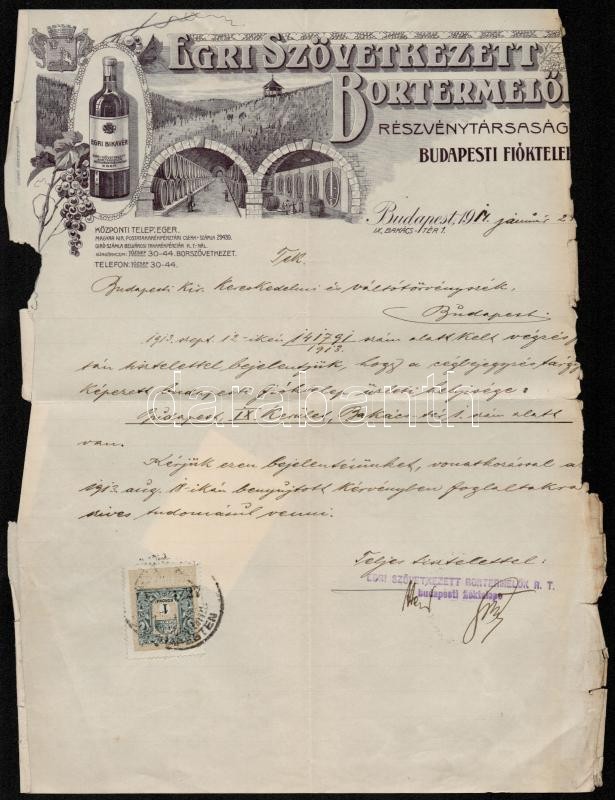 EGRI SZÖVETKEZETT
BORTERMELŐ
RÉSZVÉNYTÁRSASÁG
BUDAPESTI FIÓKTELE
EGRI BIKAVÉR
Budapest, 191
január
IX, BAKÁCS-TÉR 1.
KÖZPONTI TELEP: EGER.
MAGYAR KIR. POSTATAKARÉKPÉNZTÁRI CSEKK-SZÁMLA 29439.
GIRÓ-SZÁMLA BELVÁROSI TAKARÉKPÉNZTÁR R.T.-NÁL.
30-44. BORSZÖVETKEZET.
TELEFON: JÓZSEF 30-44.
Tek.
Budapesti Kir. Kereskedelmi és váltótörvényszék.
Budapest.
1913. sept. 12-ikén 141791/1913. szám alatt kelt végzés
tán tisztelettel bejelentjük, hogy a cégbejegyzés tárgy
képezett budapesti fióktelep üzleti helyisége:
Budapest, IX Kerület, Bakács tér 1. szám alatt
van.
Kérjük ezen bejelentésünket, vonatkozással a
1913. aug. 18-ikán benyujtott kérvényben foglaltakra
szives tudomásul venni.
Teljes tisztelettel:
EGRI SZÖVETKEZETT BORTERMELŐK R. T.
budapesti fióktelepe
1
darabanth